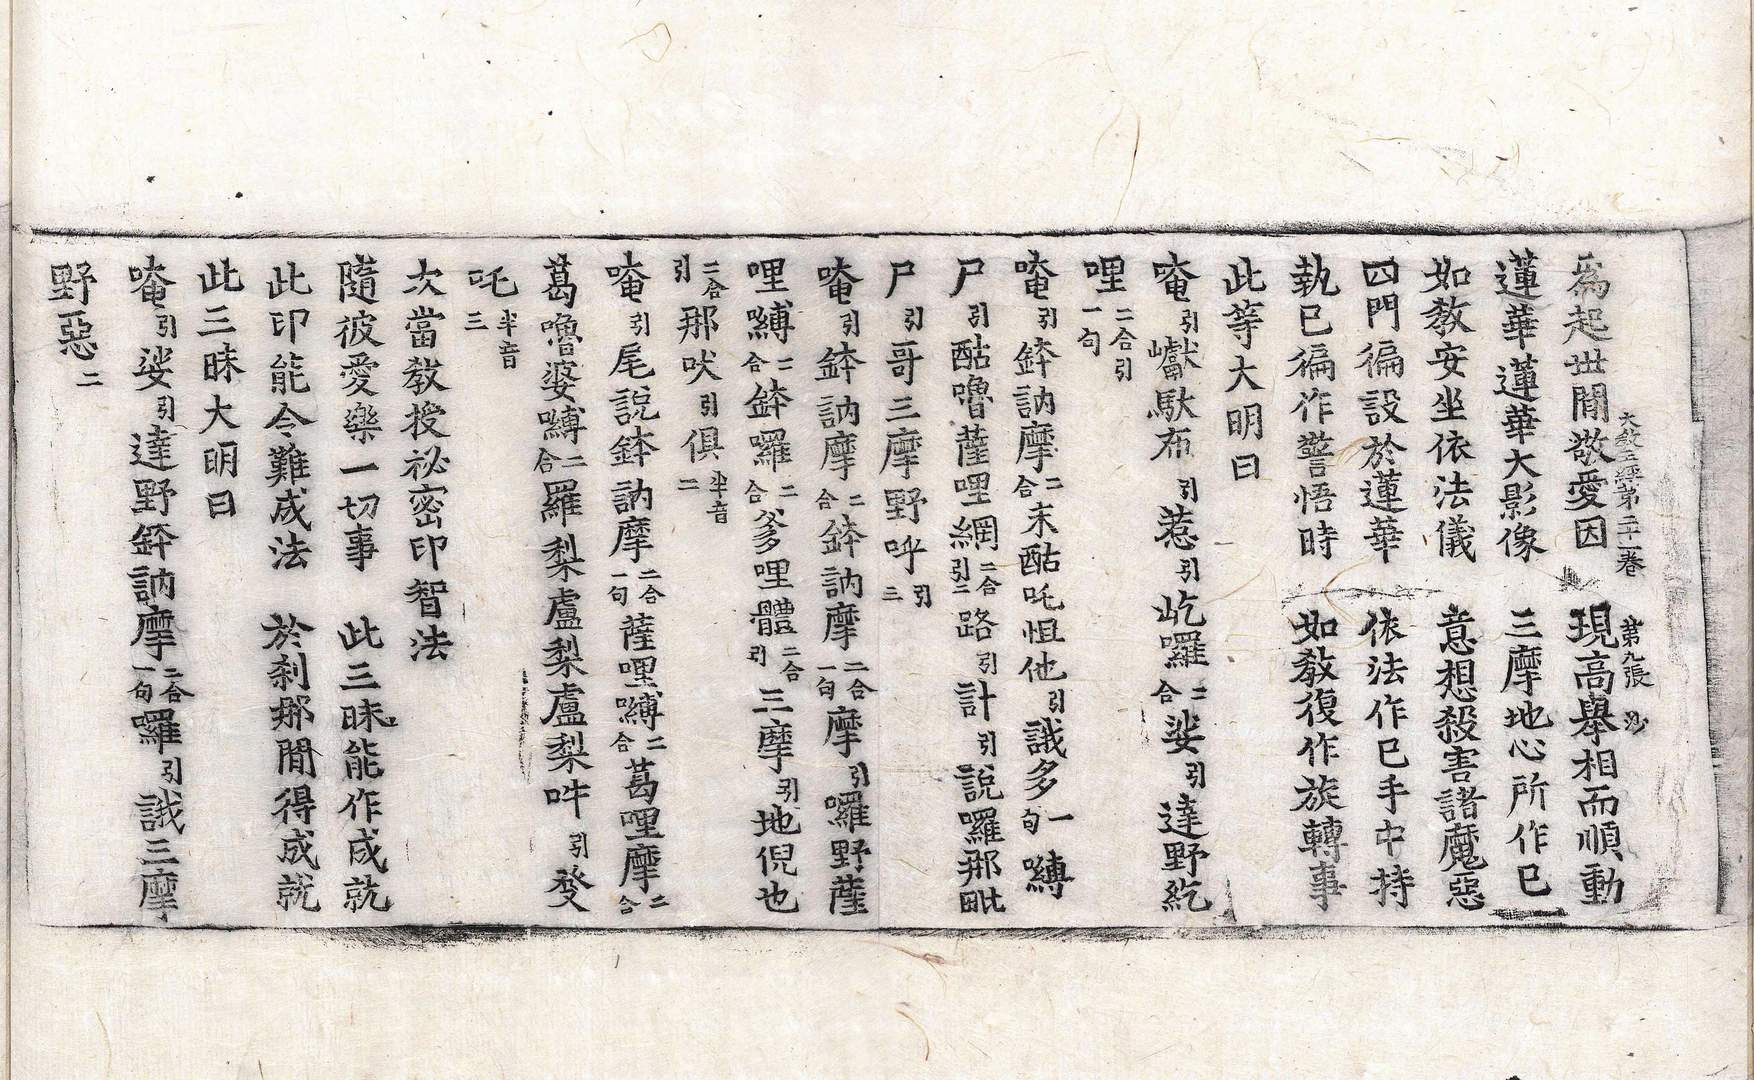 爲起世間敬愛因　現高舉相而順動
大教王經第二十一卷　第九張　沙
蓮華蓮華大影像　三摩地心所作已
如教安坐依法儀　意想殺害諸魔惡
四門徧設於蓮華　依法作已手中持
執已徧作警悟時　如教復作旋轉事
此等大明曰
唵引巘馱布引惹引屹囉二合娑引達野紇
哩二合引一句
唵引鉢訥摩二合末酤吒怛他引誐多一句嚩
尸引酤嚕薩哩網二合引二路引計引說囉那毗
尸引哥三摩野呼引三
唵引鉢訥摩二合鉢訥摩二合一句摩引囉野薩
哩嚩二合鉢囉二合爹哩體二合引三摩引地倪也
二合引那吠引俱半音二
唵引尾說鉢訥摩二合一句薩哩嚩二合葛哩摩二合
葛嚕婆嚩二合羅梨盧梨盧梨吽引發
吒半音三
次當教授祕密印智法
隨彼愛樂一切事　此三昧能作成就
此印能令難成法　於刹那間得成就
此三昧大明曰
唵引娑引達野鉢訥摩二合一句囉引誐三摩
野惡二